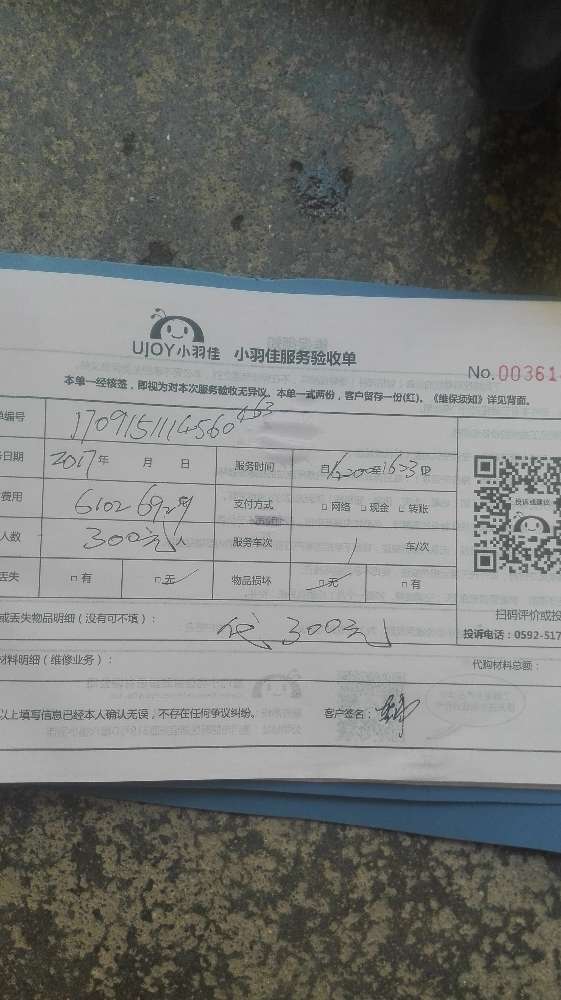 UJOY小羽佳 小羽佳服务验收单
No.00361
本单一经核签，即视为对本次服务验收无异议。本单一式两份，客户留存一份(红)。《维保须知》详见背面。
单编号 1709151114560463
日期 2017年 月 日 服务时间 自1620至1623时
费用 支付方式 □网络 □现金 □转账
人数 300元人 服务车次 1 车/次
丢失 □有 □无 物品损坏 □无 □有
投诉或建议
扫码评价或投
或丢失物品明细（没有可不填）： 300元
投诉电话：0592-517
材料明细（维修业务）： 代购材料总额：
以上填写信息已经本人确认无误，不存在任何争议纠纷。 客户签名：